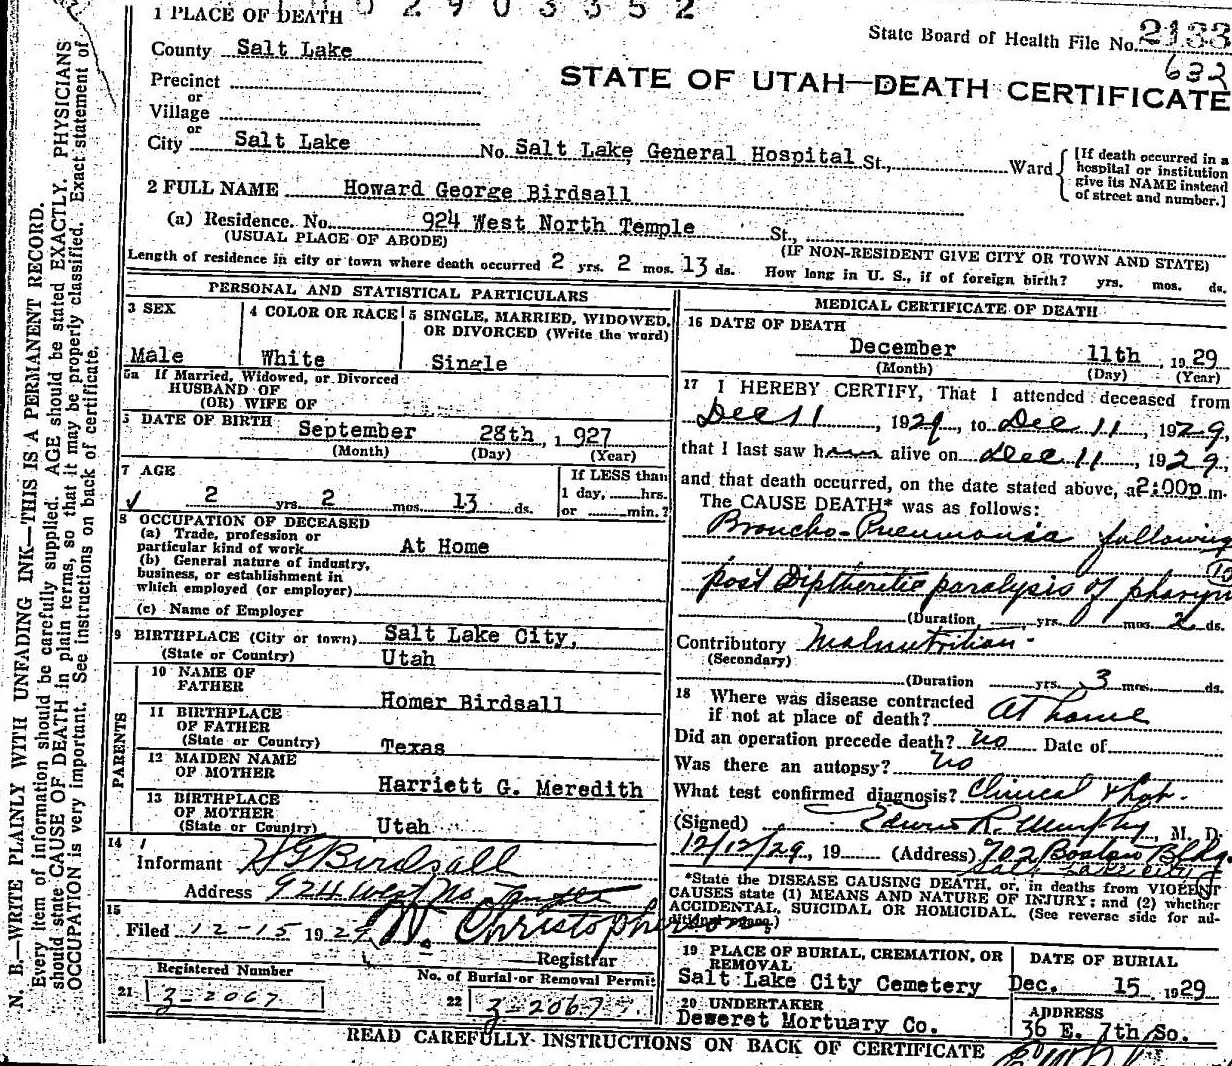 0 2 9 0 3 3 5 2
1 PLACE OF DEATH
State Board of Health File No. 2133
632
County Salt Lake
STATE OF UTAH—DEATH CERTIFICATE
Precinct
or
Village
or
City Salt Lake No. Salt Lake General Hospital St., Ward
[If death occurred in a
hospital or institution
give its NAME instead
of street and number.]
2 FULL NAME Howard George Birdsall
(a) Residence. No. 924 West North Temple St.,
(USUAL PLACE OF ABODE) (IF NON-RESIDENT GIVE CITY OR TOWN AND STATE)
Length of residence in city or town where death occurred 2 yrs. 2 mos. 13 ds. How long in U. S., if of foreign birth? yrs. mos. ds.
PERSONAL AND STATISTICAL PARTICULARS
3 SEX
Male
4 COLOR OR RACE
White
5 SINGLE, MARRIED, WIDOWED,
OR DIVORCED (Write the word)
Single
5a If Married, Widowed, or Divorced
HUSBAND OF
(OR) WIFE OF
DATE OF BIRTH September 28th, 1 927
(Month) (Day) (Year)
7 AGE
2 yrs. 2 mos. 13 ds.
If LESS than
1 day, hrs.
or min.?
8 OCCUPATION OF DECEASED
(a) Trade, profession or
particular kind of work At Home
(b) General nature of industry,
business, or establishment in
which employed (or employer)
(c) Name of Employer
9 BIRTHPLACE (City or town) Salt Lake City,
(State or Country) Utah
PARENTS
10 NAME OF
FATHER Homer Birdsall
11 BIRTHPLACE
OF FATHER
(State or Country) Texas
12 MAIDEN NAME
OF MOTHER Harriett G. Meredith
13 BIRTHPLACE
OF MOTHER
(State or Country) Utah
14
Informant H G Birdsall
Address 924 West No. Temple
15
Filed 12-15 1929 Christopherson
Registrar
Registered Number No. of Burial or Removal Permit
21 3-2067 22 3-2067
MEDICAL CERTIFICATE OF DEATH
16 DATE OF DEATH
December 11th, 1929
(Month) (Day) (Year)
17 I HEREBY CERTIFY, That I attended deceased from
Dec 11, 1929, to Dec 11, 1929,
that I last saw him alive on Dec 11, 1929.
and that death occurred, on the date stated above, at 2:00p.m.
The CAUSE DEATH* was as follows:
Broncho-Pneumonia following
post Diptheretic paralysis of pharynx
(Duration yrs. mos. 2 ds.
Contributory Malnutrition
(Secondary)
(Duration yrs. 3 mos. ds.
18 Where was disease contracted
if not at place of death? At home
Did an operation precede death? No Date of
Was there an autopsy? No
What test confirmed diagnosis? Clinical & Lab.
(Signed) Edwin R. Murphy, M. D.
12/12/29, 19 (Address) 702 Boston Bldg.
Salt Lake City
*State the DISEASE CAUSING DEATH, or, in deaths from VIOLENT
CAUSES state (1) MEANS AND NATURE OF INJURY; and (2) whether
ACCIDENTAL, SUICIDAL OR HOMICIDAL. (See reverse side for ad-
ditional space.)
19 PLACE OF BURIAL, CREMATION, OR
REMOVAL
Salt Lake City Cemetery
DATE OF BURIAL
Dec. 15 1929
20 UNDERTAKER
Deseret Mortuary Co.
ADDRESS
36 E. 7th So.
READ CAREFULLY INSTRUCTIONS ON BACK OF CERTIFICATE
N. B.—WRITE PLAINLY WITH UNFADING INK—THIS IS A PERMANENT RECORD.
Every item of information should be carefully supplied. AGE should be stated EXACTLY. PHYSICIANS
should state CAUSE OF DEATH in plain terms, so that it may be properly classified. Exact statement of
OCCUPATION is very important. See instructions on back of certificate.